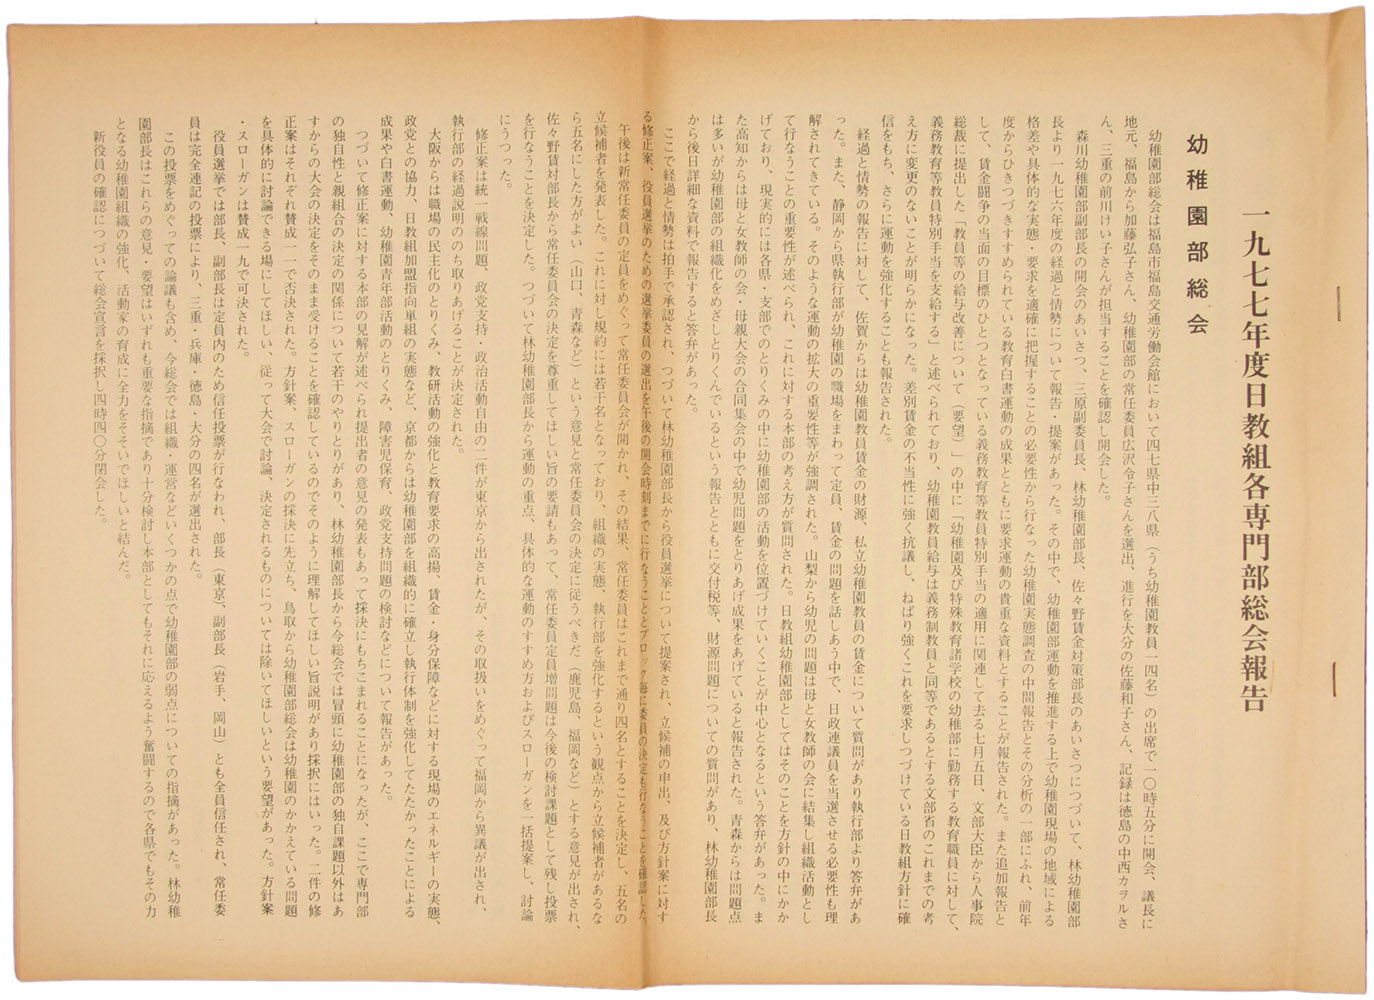 一九七七年度日教組各専門部総会報告
幼稚園部総会
幼稚園部総会は福島市福島交通労働会館において四七県中三八県（うち幼稚園教員一四名）の出席で一〇時五分に開会、議長に
地元、福島から加藤弘子さん、幼稚園部の常任委員広沢令子さんを選出、進行を大分の佐藤和子さん、記録は徳島の中西カヲルさ
ん、三重の前川けい子さんが担当することを確認し開会した。
森川幼稚園部副部長の開会のあいさつ、三原副委員長、林幼稚園部長、佐々野賃金対策部長のあいさつにつづいて、林幼稚園部
長より一九七六年度の経過と情勢について報告・提案があった。その中で、幼稚園部運動を推進する上で幼稚園現場の地域による
格差や具体的な実態・要求を適確に把握することの必要性から行なった幼稚園実態調査の中間報告とその分析の一部にふれ、前年
度からひきつづきすすめられている教育白書運動の成果とともに要求運動の貴重な資料とすることが報告された。また追加報告と
して、賃金闘争の当面の目標のひとつとなっている義務教育等教員特別手当の適用に関連して去る七月五日、文部大臣から人事院
総裁に提出した「教員等の給与改善について（要望）」の中に「幼稚園及び特殊教育諸学校の幼稚部に勤務する教育職員に対して、
義務教育等教員特別手当を支給する」と述べられており、幼稚園教員給与は義務制教員と同等であるとする文部省のこれまでの考
え方に変更のないことが明らかになった。差別賃金の不当性に強く抗議し、ねばり強くこれを要求しつづけている日教組方針に確
信をもち、さらに運動を強化することも報告された。
経過と情勢の報告に対して、佐賀からは幼稚園教員賃金の財源、私立幼稚園教員の賃金について質問があり執行部より答弁があ
った。また、静岡から県執行部が幼稚園の職場をまわって定員、賃金の問題を話しあう中で、日政連議員を当選させる必要性も理
解されてきている。そのような運動の拡大の重要性等が強調された。山梨から幼児の問題は母と女教師の会に結集し組織活動とし
て行なうことの重要性が述べられ、これに対する本部の考え方が質問された。日教組幼稚園部としてはそのことを方針の中にかか
げており、現実的には各県・支部でのとりくみの中に幼稚園部の活動を位置づけていくことが中心となるという答弁があった。ま
た高知からは母と女教師の会・母親大会の合同集会の中で幼児問題をとりあげ成果をあげていると報告された。青森からは問題点
は多いが幼稚園部の組織化をめざしとりくんでいるという報告とともに交付税等、財源問題についての質問があり、林幼稚園部長
から後日詳細な資料で報告すると答弁があった。
ここで経過と情勢は拍手で承認され、つづいて林幼稚園部長から役員選挙について提案され、立候補の申出、及び方針案に対す
る修正案、役員選挙のための選挙委員の選出を午後の開会時刻までに行なうこととブロック毎に委員の決定も行なうことを確認した。
午後は新常任委員の定員をめぐって常任委員会が開かれ、その結果、常任委員はこれまで通り四名とすることを決定し、五名の
立候補者を発表した。これに対し規約には若干名となっており、組織の実態、執行部を強化するという観点から立候補者があるな
ら五名にした方がよい（山口、青森など）という意見と常任委員会の決定に従うべきだ（鹿児島、福岡など）とする意見が出され、
佐々野賃対部長から常任委員会の決定を尊重してほしい旨の要請もあって、常任委員定員増問題は今後の検討課題として残し投票
を行なうことを決定した。つづいて林幼稚園部長から運動の重点、具体的な運動のすすめ方およびスローガンを一括提案し、討論
にうつった。
修正案は統一戦線問題、政党支持・政治活動自由の二件が東京から出されたが、その取扱いをめぐって福岡から異議が出され、
執行部の経過説明ののち取りあげることが決定された。
大阪からは職場の民主化のとりくみ、教研活動の強化と教育要求の高揚、賃金・身分保障などに対する現場のエネルギーの実態、
政党との協力、日教組加盟指向単組の実態など、京都からは幼稚園部を組織的に確立し執行体制を強化してたたかったことによる
成果や白書運動、幼稚園青年部活動のとりくみ、障害児保育、政党支持問題の検討などについて報告があった。
つづいて修正案に対する本部の見解が述べられ提出者の意見の発表もあって採決にもちこまれることになったが、ここで専門部
の独自性と親組合の決定の関係について若干のやりとりがあり、林幼稚園部長から今総会では冒頭に幼稚園部の独自課題以外はあ
すからの大会の決定をそのまま受けることを確認しているのでそのように理解してほしい旨説明があり採択にはいった。二件の修
正案はそれぞれ賛成一一で否決された。方針案、スローガンの採決に先立ち、鳥取から幼稚園部総会は幼稚園のかかえている問題
を具体的に討論できる場にしてほしい、従って大会で討論、決定されるものについては除いてほしいという要望があった。方針案
・スローガンは賛成一九で可決された。
役員選挙では部長、副部長は定員内のため信任投票が行なわれ、部長（東京）、副部長（岩手、岡山）とも全員信任され、常任委
員は完全連記の投票により、三重・兵庫・徳島・大分の四名が選出された。
この投票をめぐっての論議も含め、今総会では組織・運営などいくつかの点で幼稚園部の弱点についての指摘があった。林幼稚
園部長はこれらの意見・要望はいずれも重要な指摘であり十分検討し本部としてもそれに応えるよう奮闘するので各県でもその力
となる幼稚園組織の強化、活動家の育成に全力をそそいでほしいと結んだ。
新役員の確認につづいて総会宣言を採択し四時四〇分閉会した。